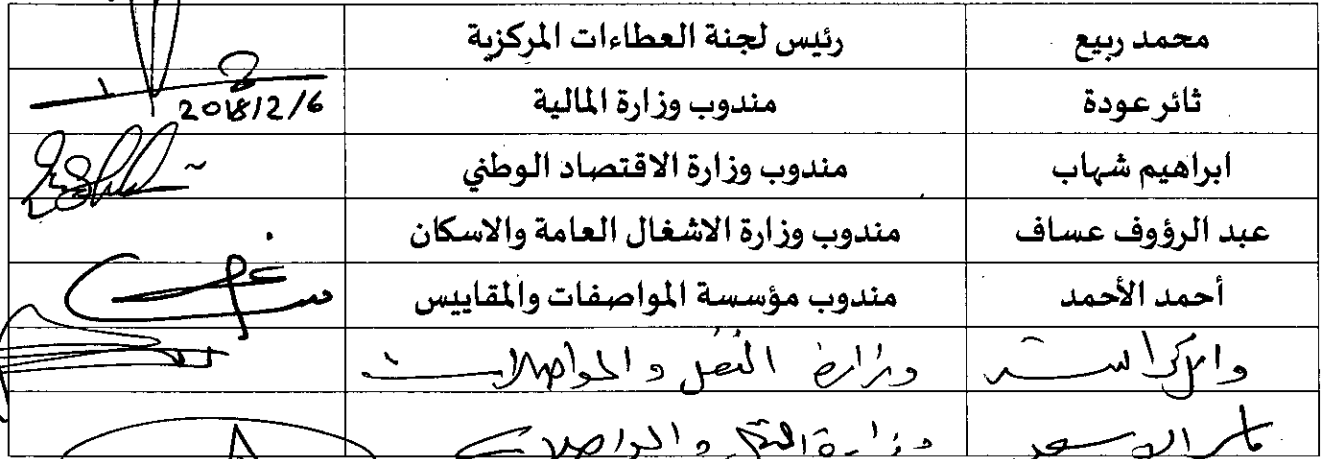 محمد ربيع رئيس لجنة العطاءات المركزية
ثائر عودة مندوب وزارة المالية 2018/2/6
ابراهيم شهاب مندوب وزارة الاقتصاد الوطني
عبد الرؤوف عساف مندوب وزارة الاشغال العامة والاسكان
أحمد الأحمد مندوب مؤسسة المواصفات والمقاييس
وزارة النقل والمواصلات
وزارة النقل والمواصلات